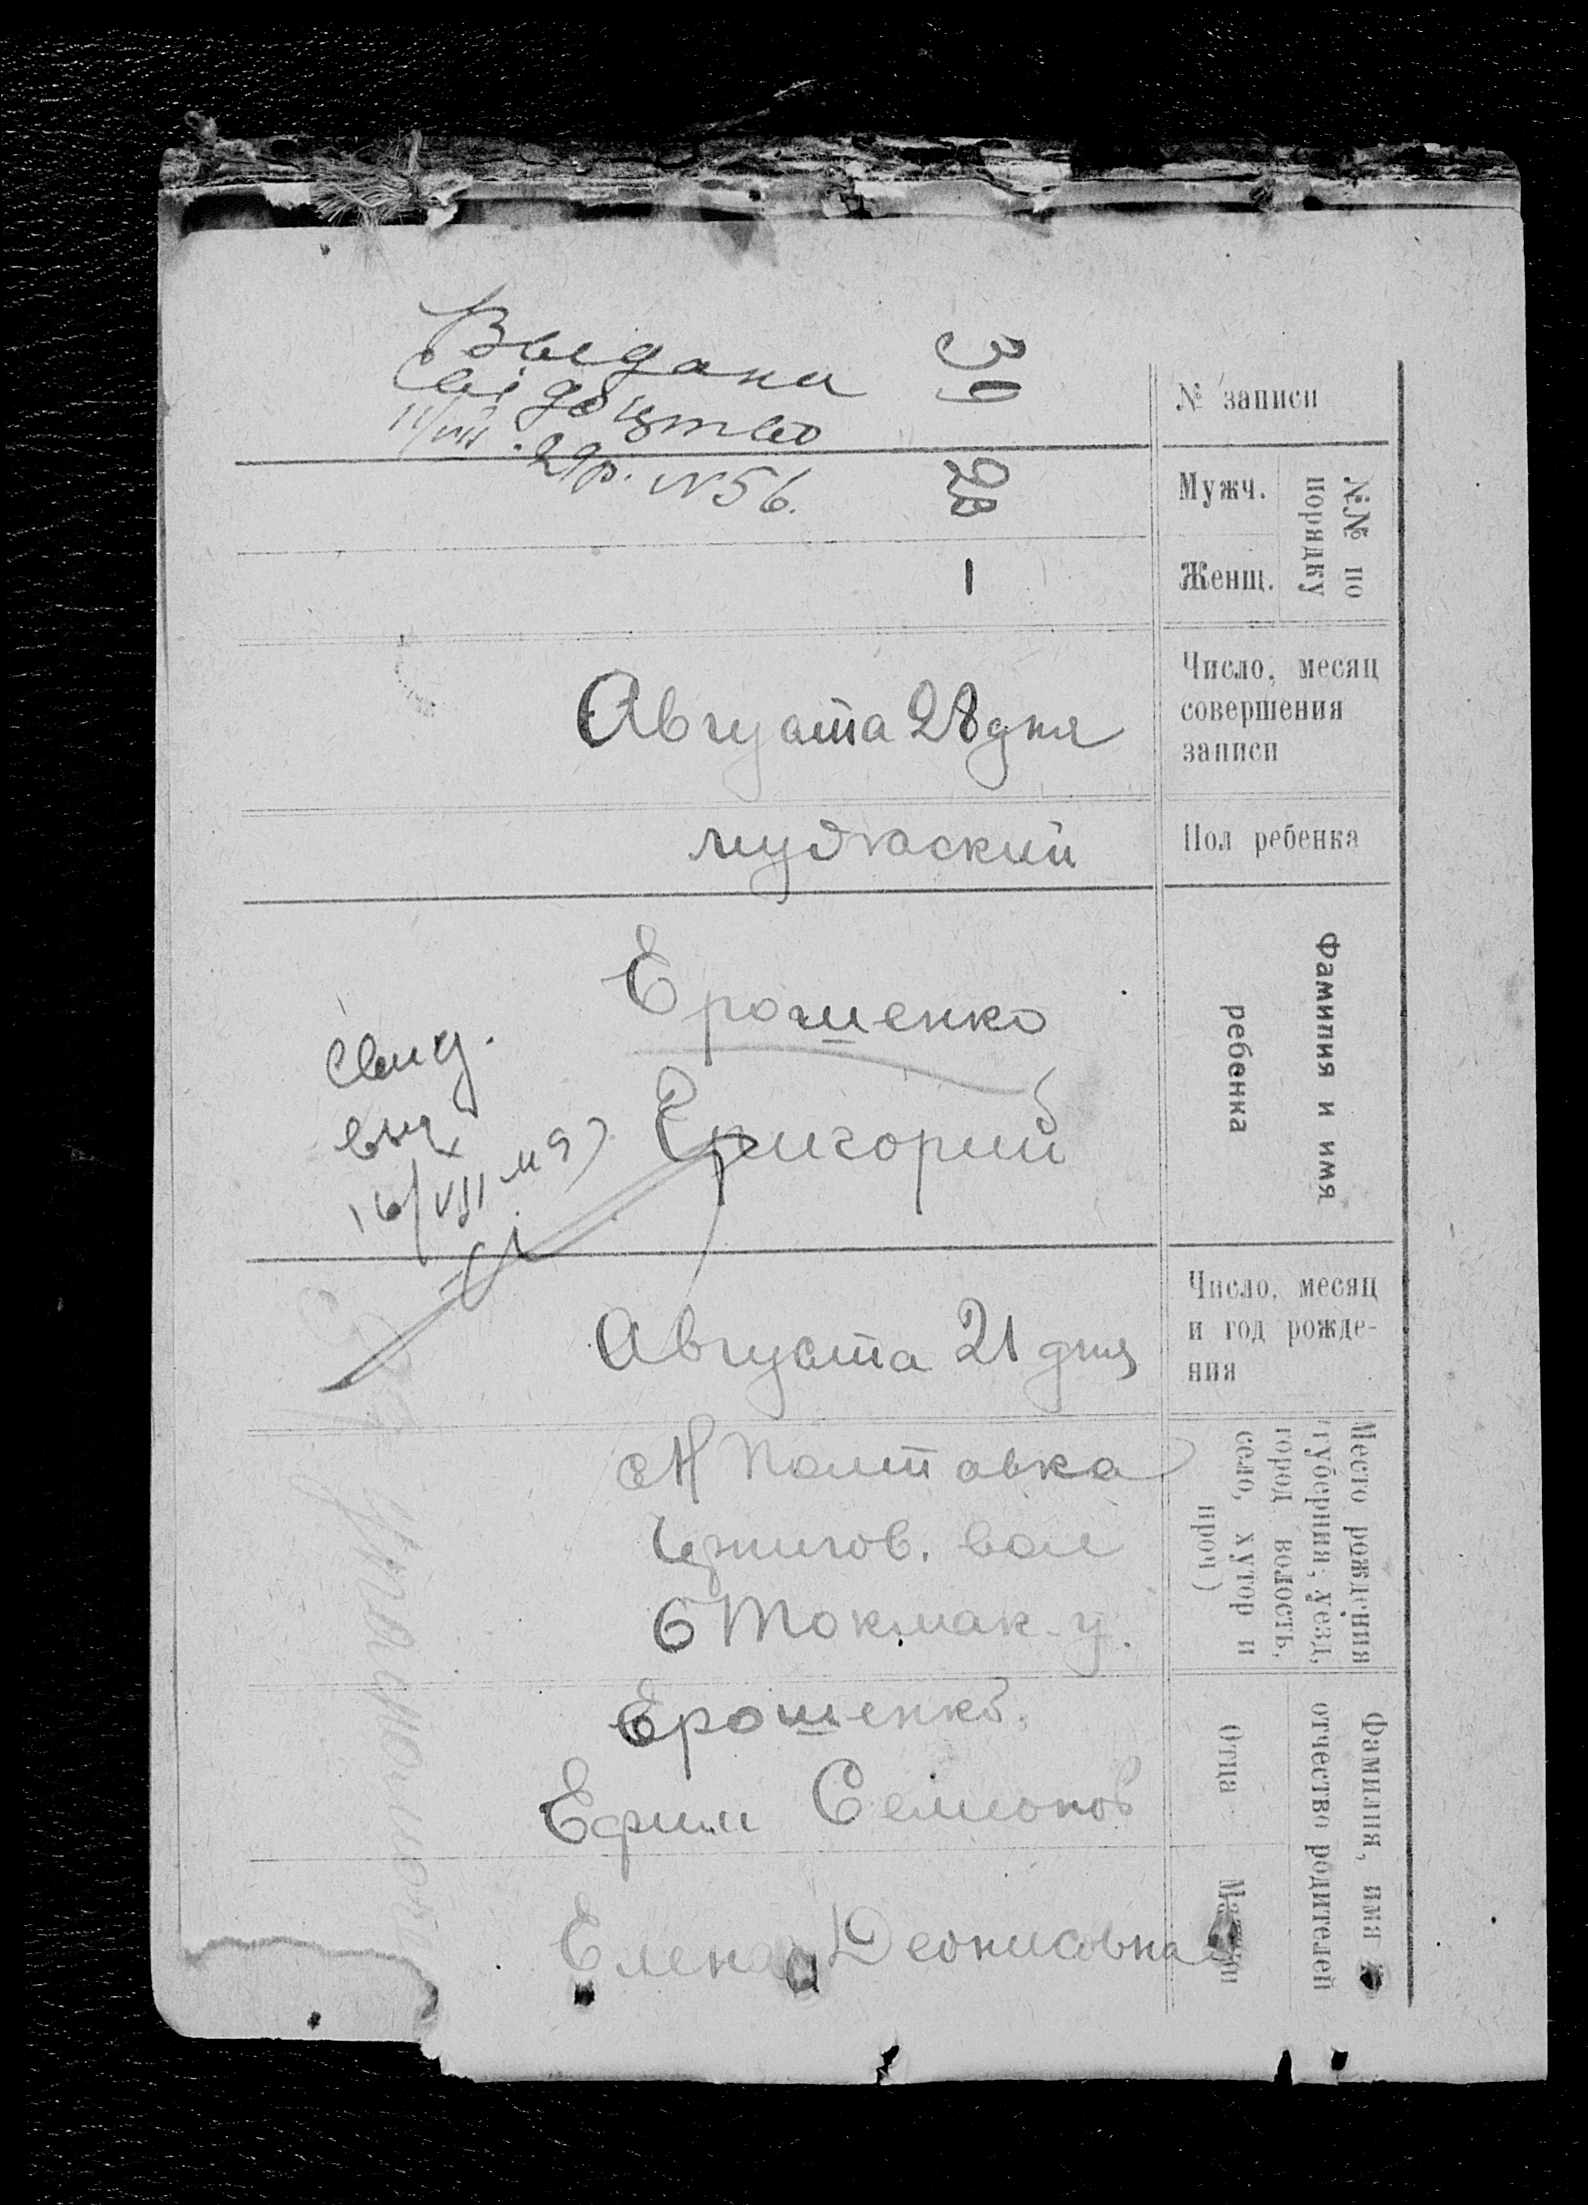 № записи
39
Выдана
Свідоцтво
11/VII. 29р. N 56.
№№ по
порядку
Мужч.
28
Женщ.
—
Число, месяц
совершения
записи
Августа 28 дня
Пол ребенка
мужаский
Фамилия и имя
ребенка
Ерошенко
Григорий
Свид.
выд
16/VIII
Число, месяц
и год рожде-
ния
Августа 21 дня
Место рождения
(губерния, уезд,
город волость,
село, хутор и
проч)
с Н Полтавка
Чернигов. вол
Б Токмак. у.
Фамилия, имя и
отчество родителей
Отца
Ерошенко.
Ефим Семионов
Матери
Елена Деонисовна